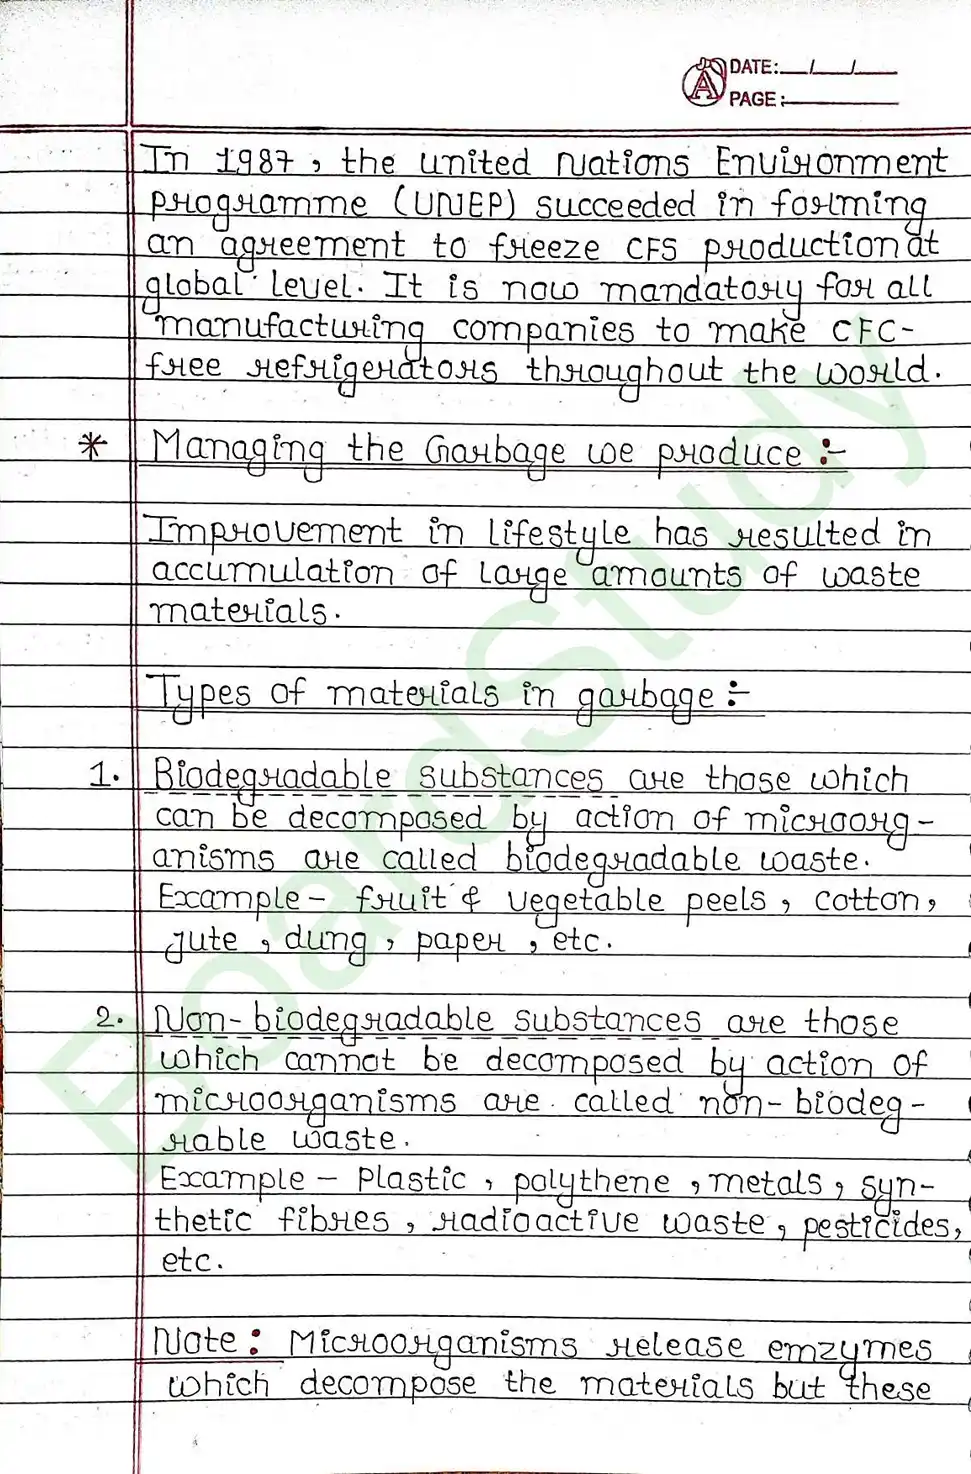 DATE: __/__/__
PAGE:
In 1987, the united Nations Environment
programme (UNEP) succeeded in forming
an agreement to freeze CFS production at
global level. It is now mandatory for all
manufacturing companies to make CFC-
free refrigerators throughout the world.
* Managing the Garbage we produce :-
Improvement in lifestyle has resulted in
accumulation of large amounts of waste
materials.
Types of materials in garbage :-
1. Biodegradable substances are those which
can be decomposed by action of microorg-
anisms are called biodegradable waste.
Example - fruit & vegetable peels, cotton,
jute, dung, paper, etc.
2. Non-biodegradable substances are those
which cannot be decomposed by action of
microorganisms are called non-biodeg-
rable waste.
Example - Plastic, polythene, metals, syn-
thetic fibres, radioactive waste, pesticides,
etc.
Note: Microorganisms release emzymes
which decompose the materials but these
BoardStudy